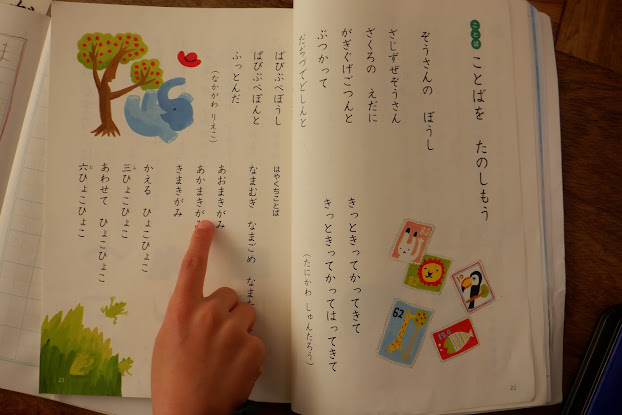 ことば
ことばを　たのしもう
ぞうさんの　ぼうし
ざじずぜぞうさん
ざくろの　えだに
がぎぐげごつんと
ぶつかって
だぢづでどしんと
ばびぶべぼうし
ぱぴぷぺぽんと
ふっとんだ
（なかがわ　りえこ）
きっときってかってきて
きっときってかってはってきて
（たにかわ　しゅんたろう）
62
22
はやくちことば
なまむぎ　なまごめ　なまた
あおまきがみ
あかまきが
きまきがみ
かえる　ひょこひょこ
三ひょこひょこ
あわせて　ひょこひょこ
六ひょこひょこ
23